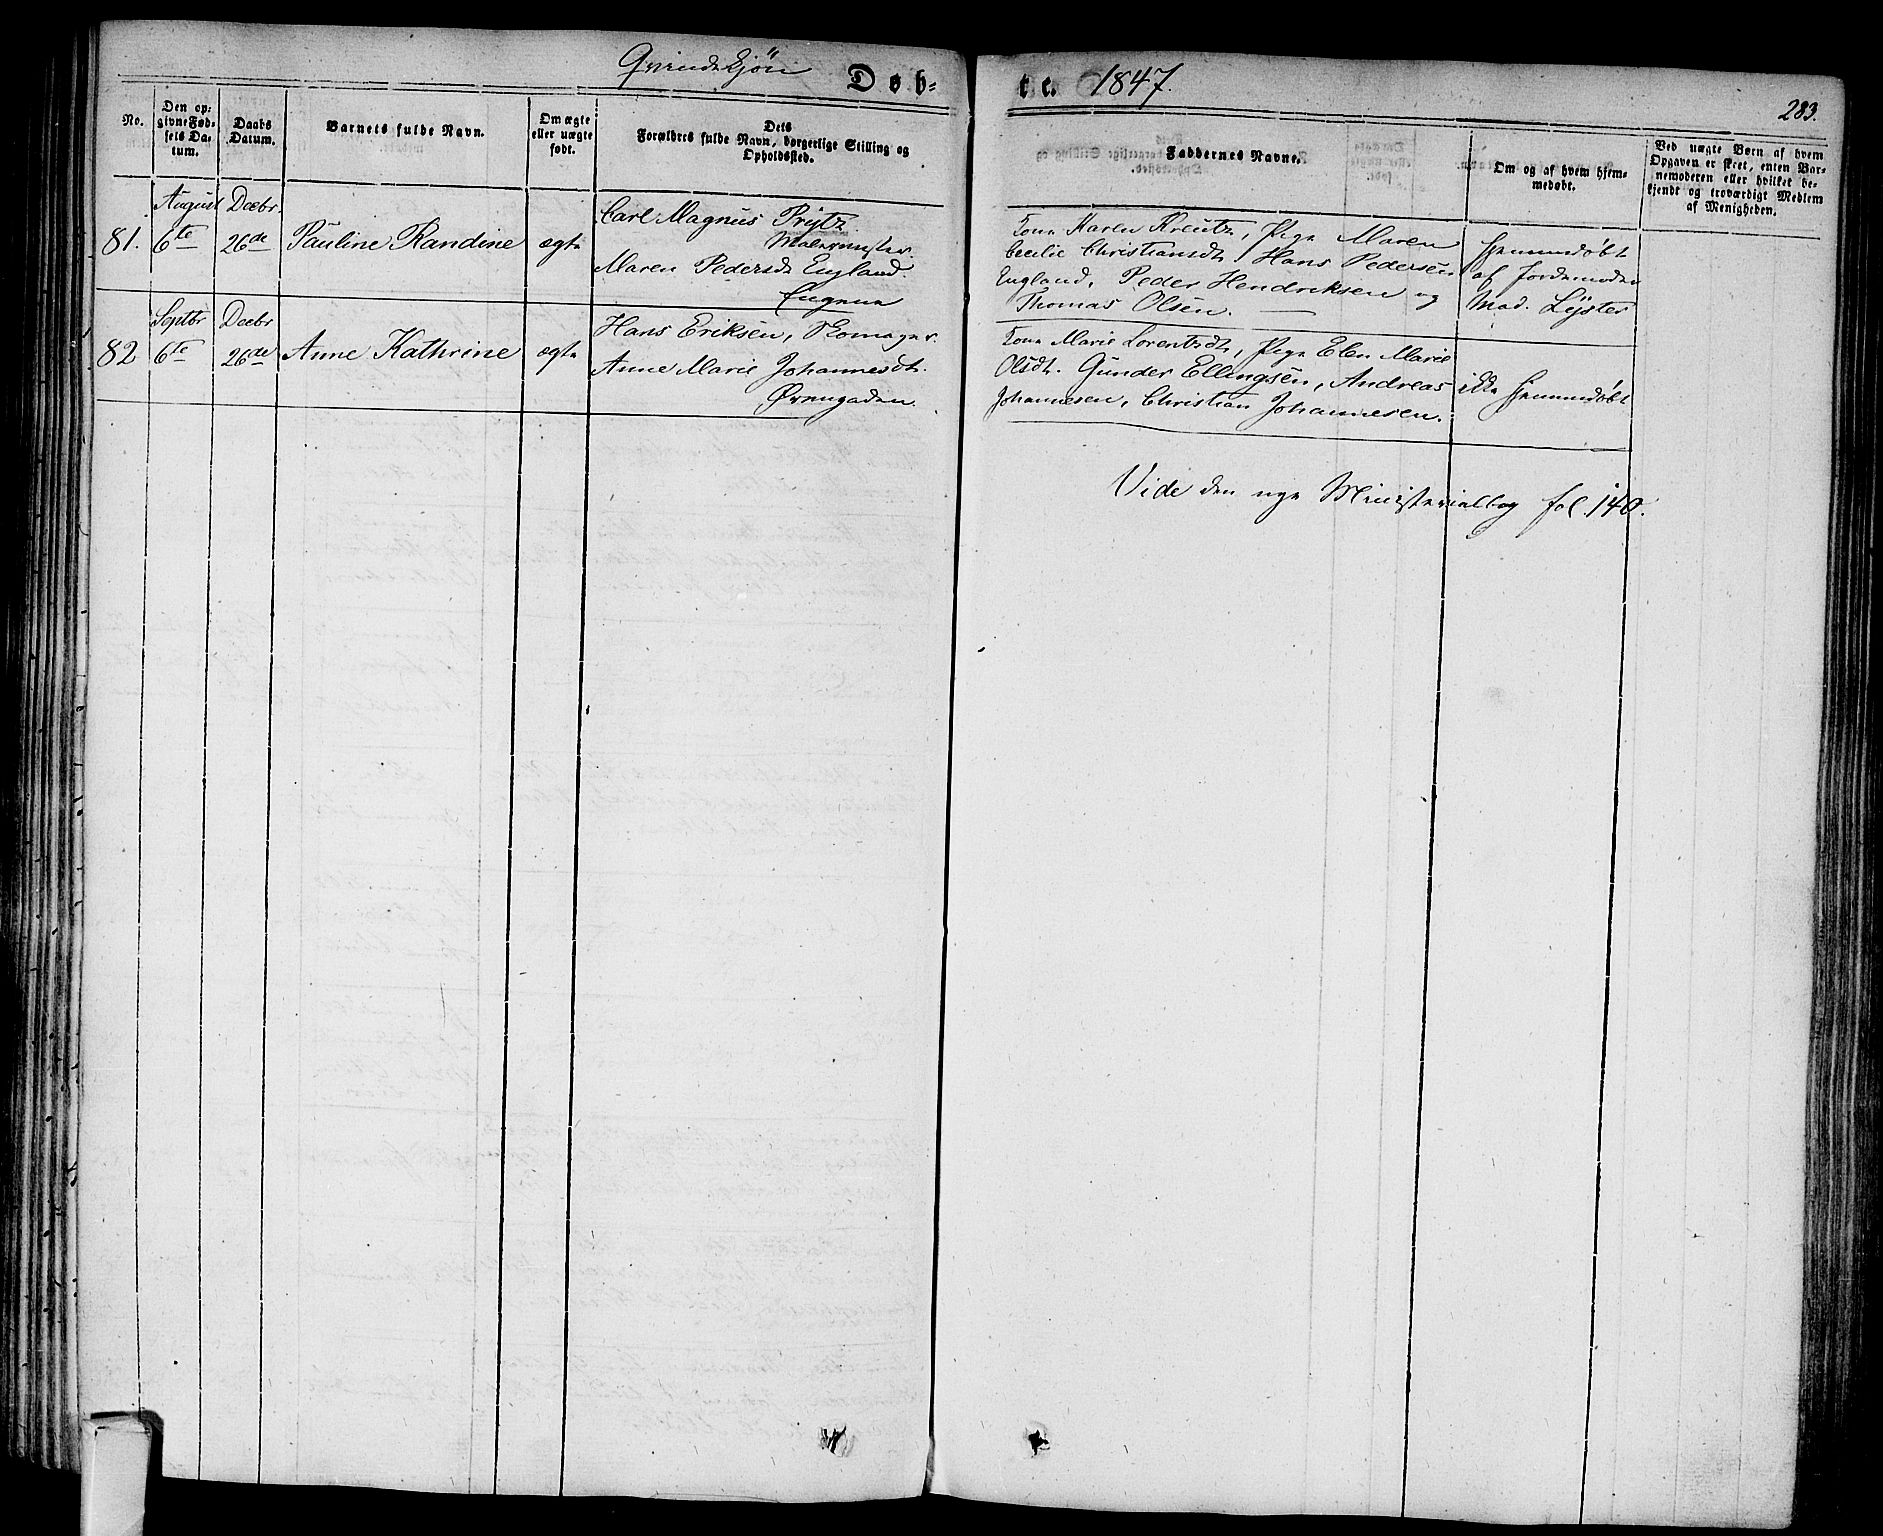 Qvindekjön Døb= t. c. 1847.
283.
No.
Den op-
givne Fød-
sels Da-
tum.
Daabs
Datum.
Barnets fulde Navn.
Om ægte
eller uægte
født.
Dets
Forældres fulde Navn, borgerlige Stilling og
Opholdssted.
Faddernes Navne.
Om og af hvem hjem-
medøbt.
Ved uægte Børn af hvem
Opgaven er skeet, enten Bar-
nemoderen eller hvilket be-
kjendt og troværdigt Medlem
af Menigheden.
81.
August
6te
Decbr.
26de
Pauline Randine
ægte
Carl Magnus Prytz
Malermester.
Maren Pedersdt England
Engene
Kone Maren Kreutz, Pige Maren
Cecilie Christiansdt, Hans Pedersen
England, Peder Hendriksen og
Thomas Olsen.
hjemmedøbt
af Jordemoder
Mad. Lyster
82
Septbr
6te
Decbr
26de
Anne Kathrine
ægte
Hans Eriksen, Skomager.
Anne Marie Johannesdt.
Ørengaden
Kone Marie Lorentsdt, Pige Elen Marie
Olsdt. Gunder Ellingsen, Andreas
Johannesen, Christian Johannesen.
ikke hjemmedøbt
Vide den nye Ministerialbog fol. 140.